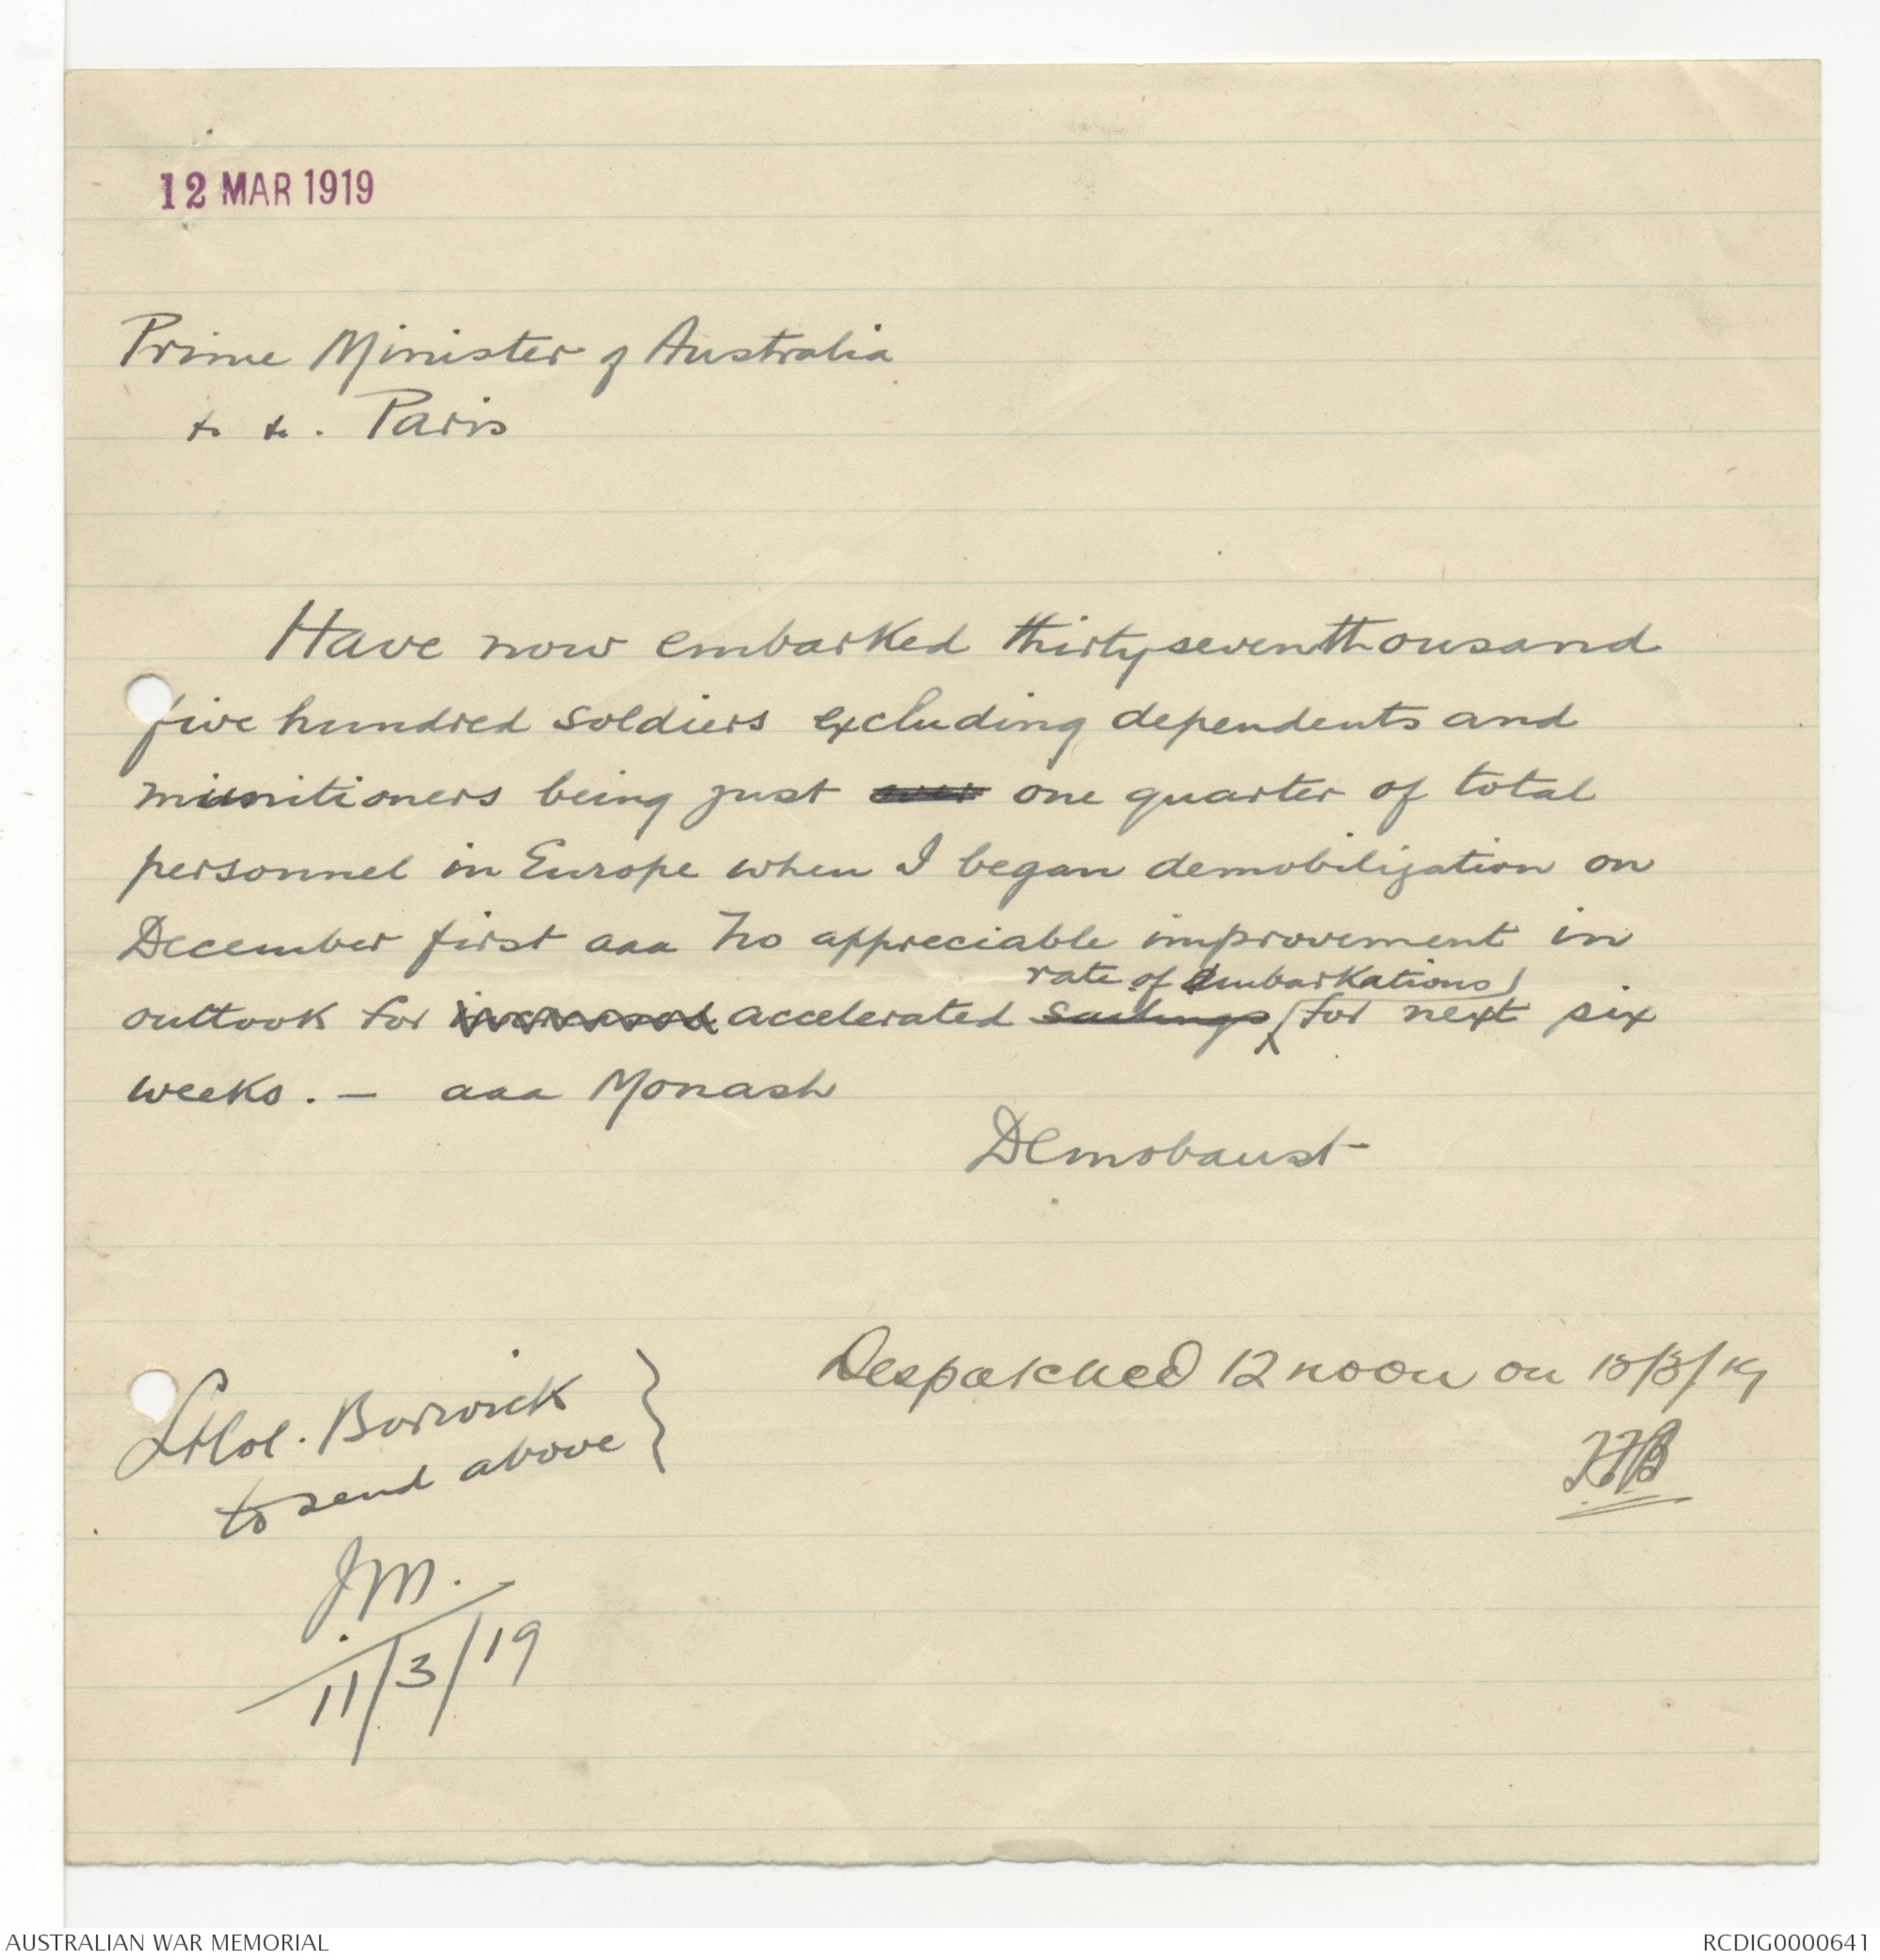 12 MAR 1919
Prime Minister of Australia
&c &c. Paris
Have now embarked thirtyseventhousand
five hundred soldiers excluding dependents and
munitioners being just over one quarter of total
personnel in Europe when I began demobilization on
December first aaa No appreciable improvement in
rate of embarkations
outlook for increased accelerated sailings for next six
weeks. — aaa Monash
Demobaust
Lt Col. Barwick
to send above
J.M.
11/3/19
Despatched 12 noon on
AUSTRALIAN WAR MEMORIAL
RCDIG0000641